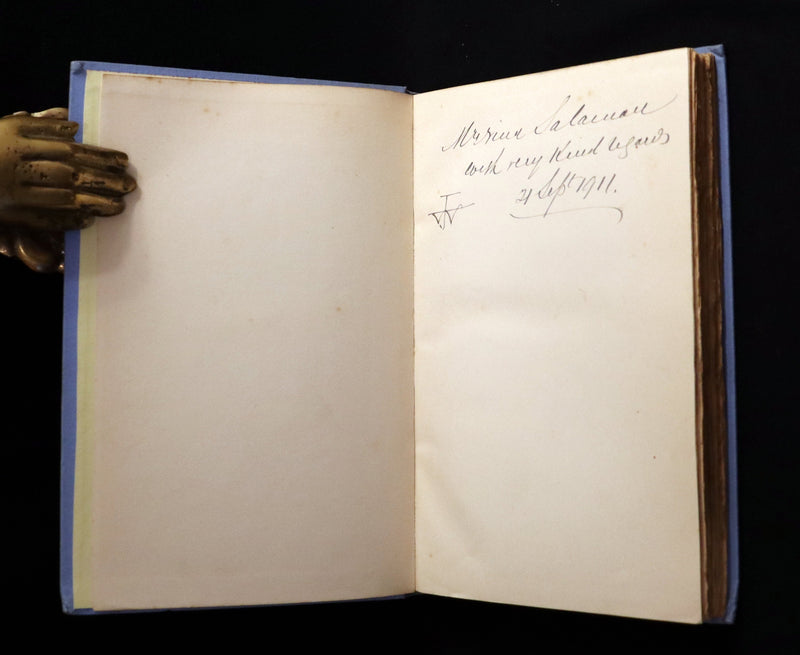 Salaman
with very Kind regards
21 Sept 1911.